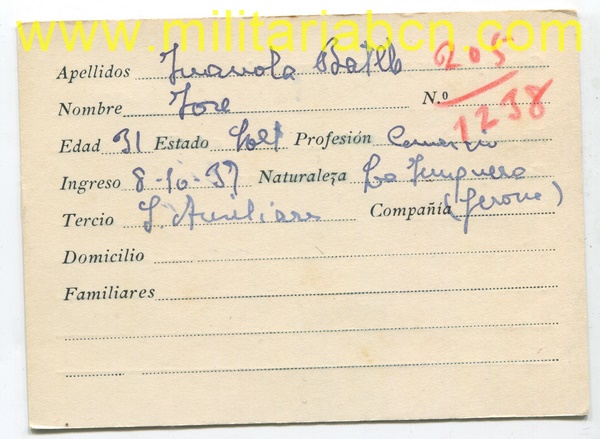 www.militariabcn.com
Apellidos Juanola Batlle
Nombre Jose N.º 205
1238
Edad 31 Estado Solt Profesión Comercio
Ingreso 8-10-37 Naturaleza La Junquera
Tercio S. Auxiliares Compañía (Gerona)
Domicilio
Familiares